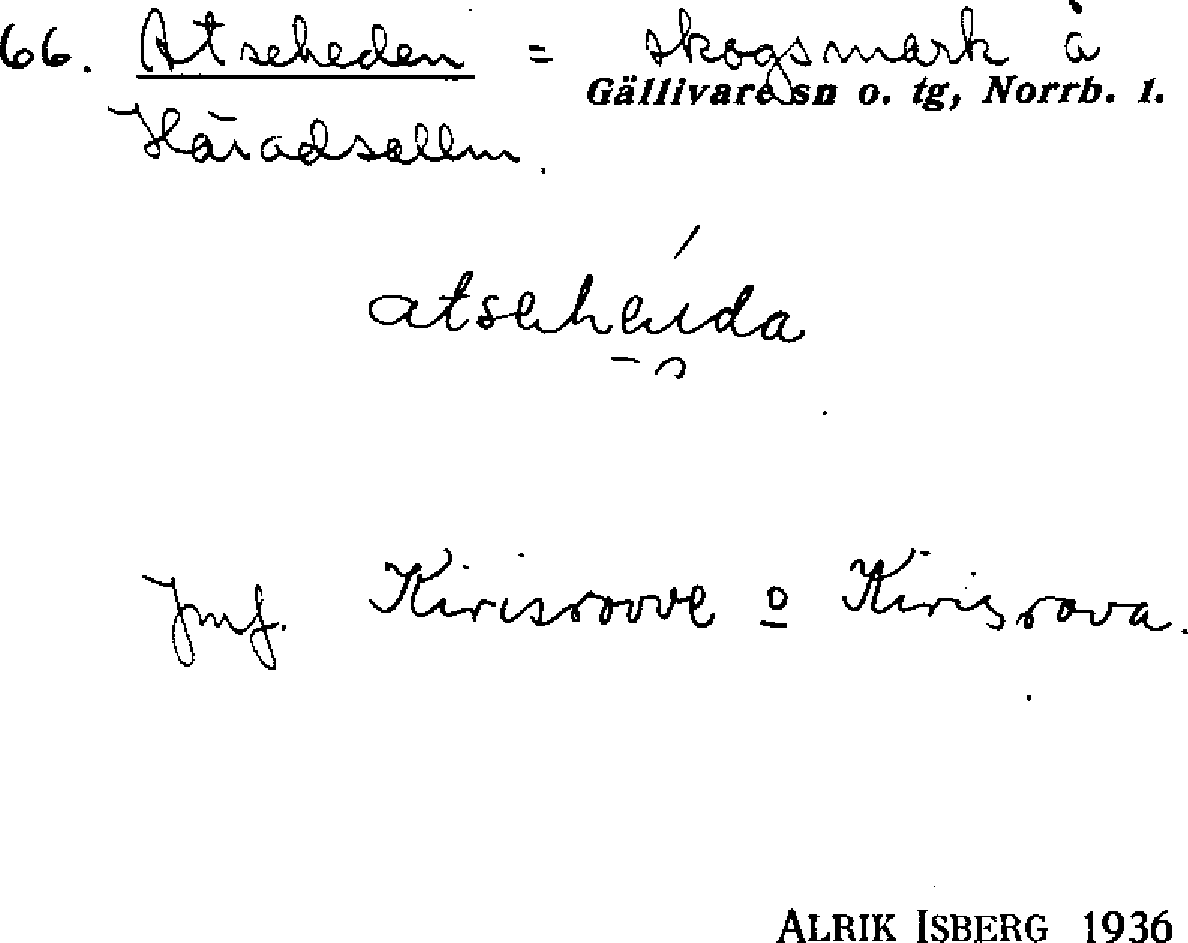 66. Atseheden = skogsmark å
Gällivare sn o. tg, Norrb. l.
Häradsallm.
atsehei̯da
Jmf. Kirisrovve o Kirisrova.
ALRIK ISBERG 1936